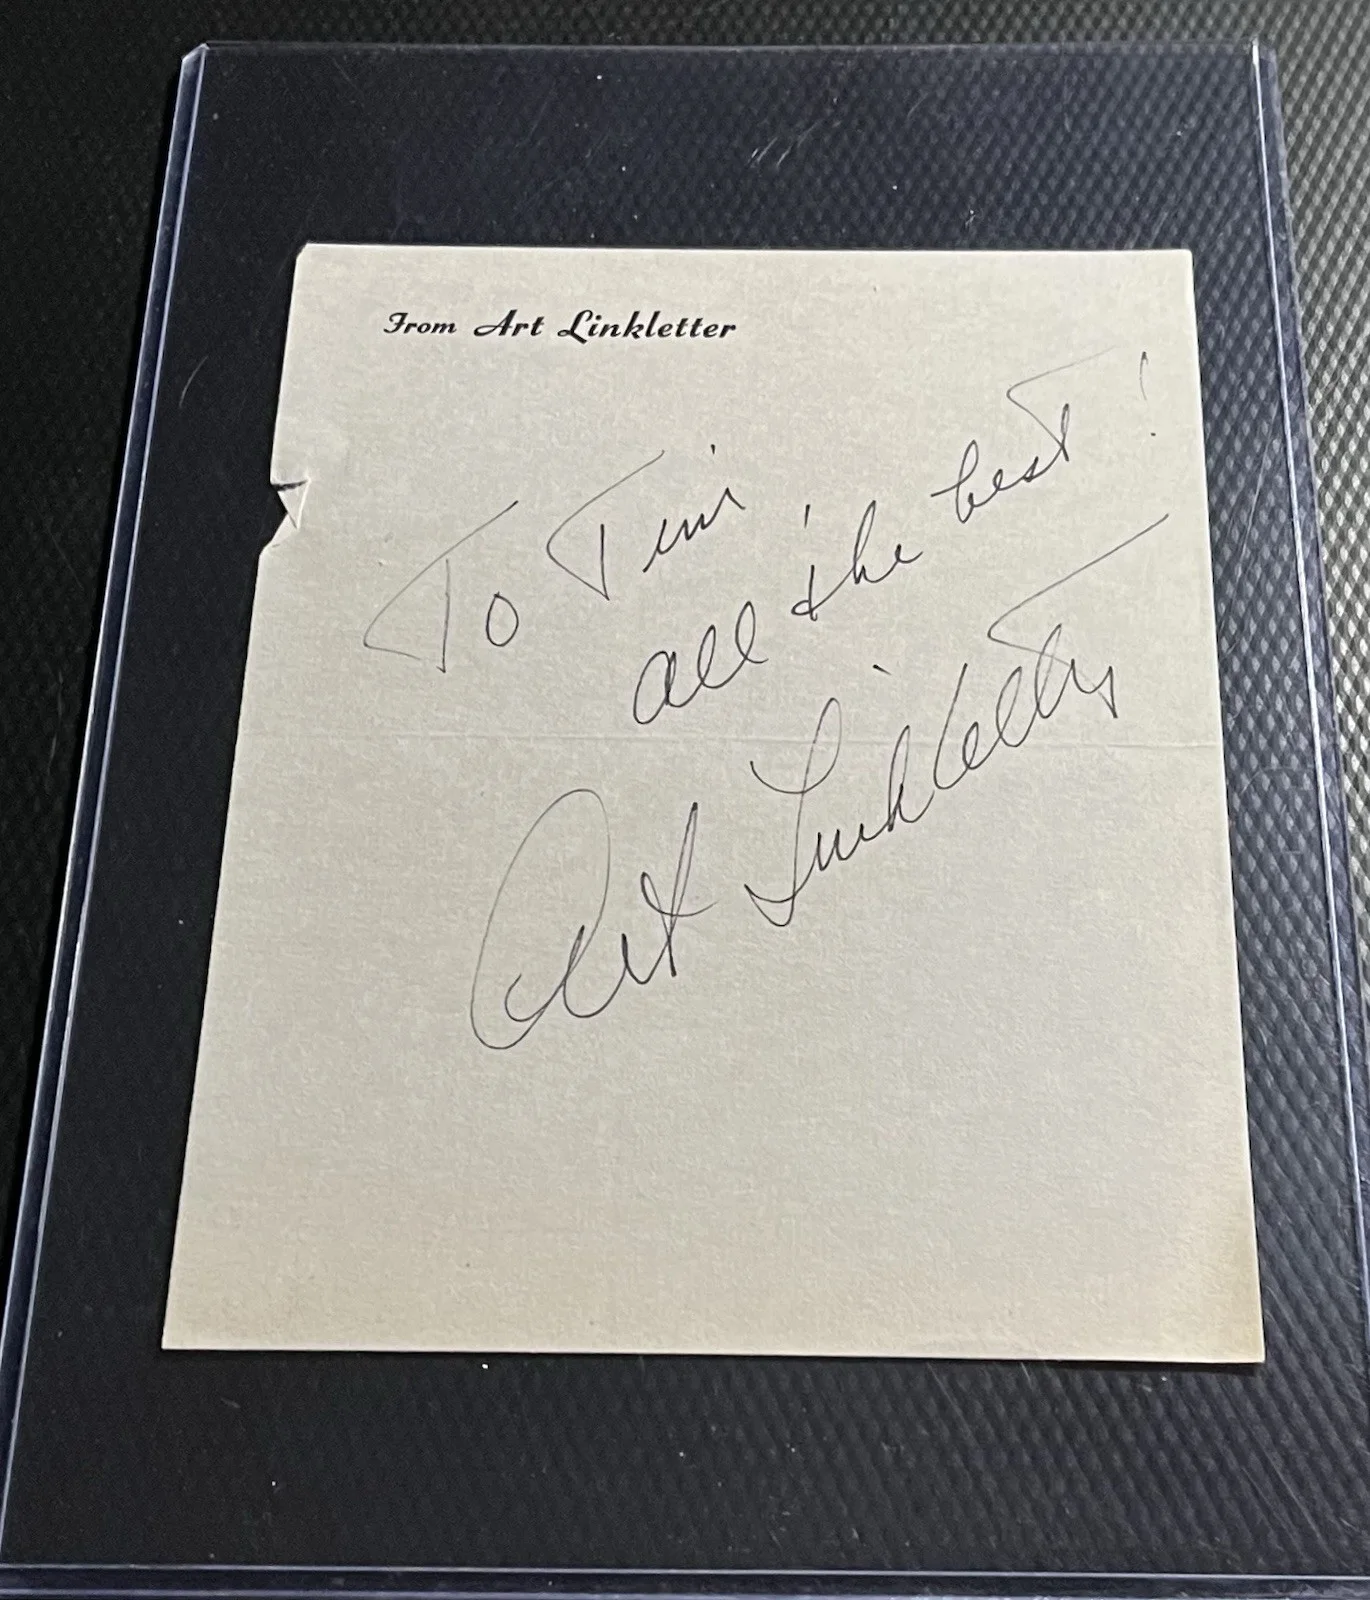 From Art Linkletter
To Tim
all the best!
Art Linkletter